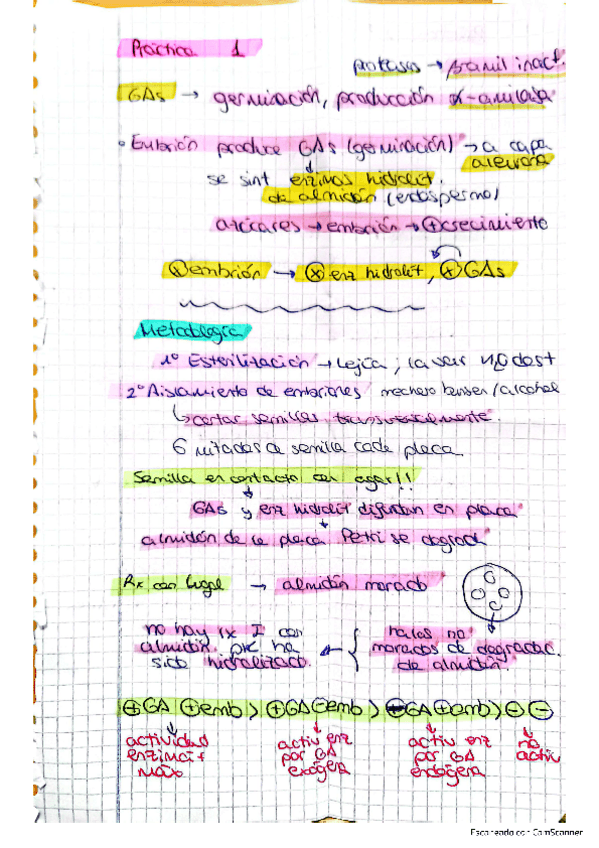 Práctica 1
proteasas → β-amil inact.
GAs → germinación, producción α-amilasa
• Embrión produce GAs (germinación) → a capa aleurona
↓
se sint enzimas hidrolít.
de almidón (endospermo)
azúcares → embrión → ⊕ crecimiento
ⓧ embrión → ⓧ enz hidrolít, ⓧ GAs
Metodología
1º Esterilización → Lejía; lavar H2O dest
2º Aislamiento de embriones / mechero bunsen / alcohol
↳ cortar semillas transversalmente.
6 mitades de semilla cada placa.
Semilla en contacto con agar!!
↓
GAs y enz hidrolít difunden en placa
↓
almidón de la placa Petri se degrada
Rx con Lugol → almidón morado
no hay rx I con
almidón pk ha
sido hidrolizado.
halos no
morados de degradac.
de almidón
⊕GA ⊕emb > ⊕GA ⊖emb > ⊖GA ⊕emb > ⊖ ⊖
actividad
enzimát
máx
activ enz
por GA
exógera
activ enz
por GA
endógera
no
activ
Escaneado con CamScanner